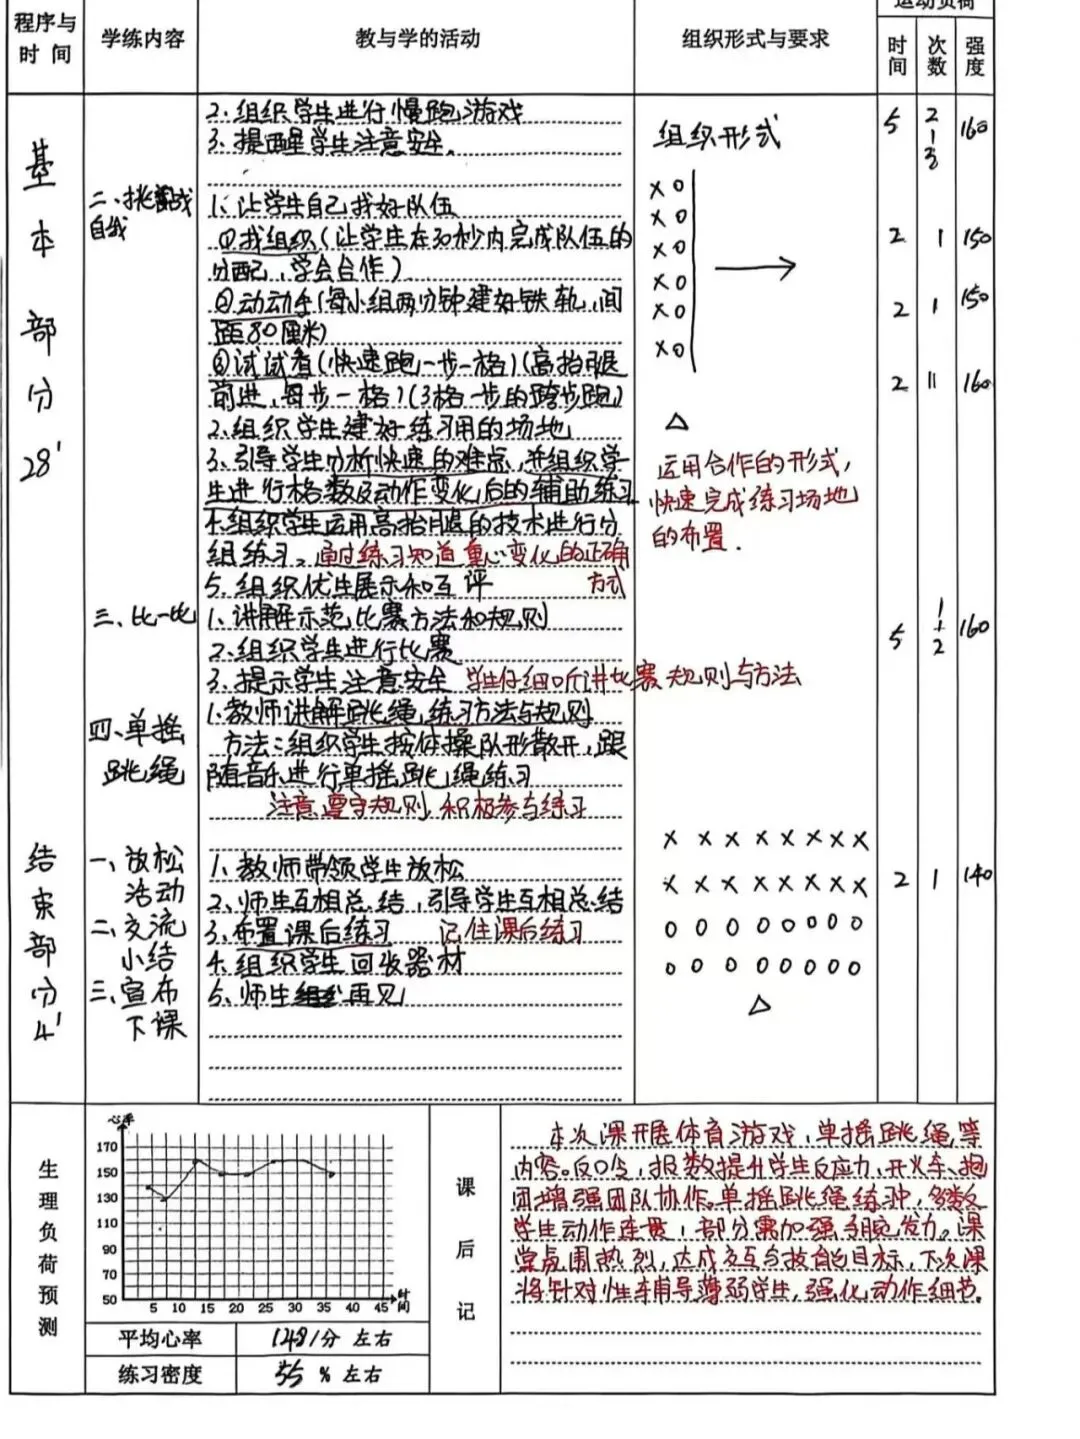 运动负荷
程序与时间
学练内容
教与学的活动
组织形式与要求
时间
次数
强度
基本部分
28'
2.组织学生进行慢跑游戏
3.提醒学生注意安全.
二、挑战自我
1.让学生自己找好队伍
①找组织(让学生在30秒内完成队伍的
分配,学会合作)
②动动手(每小组两分钟建好铁轨,间
距80厘米)
③试试看(快速跑一步一格)(高抬腿
前进,每步一格)(3格一步的跨步跑)
2.组织学生建好练习用的场地
3.引导学生分析快速的难点,并组织学
生进行格数及动作变化后的辅助练习
4.组织学生运用高抬腿的技术进行分
组练习。通过练习知道重心变化的正确
方式
5.组织优生展示和互评
三、比一比
1.讲解示范比赛方法和规则
2.组织学生进行比赛
3.提示学生注意安全 学生仔细听讲比赛规则与方法
四、单摇
跳绳
1.教师讲解跳绳练习方法与规则
方法:组织学生按体操队形散开,跟
随音乐进行单摇跳绳练习
注意遵守规则,积极参与练习
组织形式
x o
x o
x o
x o
x o
x o
运用合作的形式,
快速完成练习场地
的布置.
5 2-3 160
2 1 150
2 1 150
2 11 160
5 1-2 160
结束部分
4'
一、放松
活动
二、交流
小结
三、宣布
下课
1.教师带领学生放松
2.师生互相总结,引导学生互相总结
3.布置课后练习 记住课后练习
4.组织学生回收器材
5.师生再见
x x x x x x x x
x x x x x x x x
o o o o o o o o
o o o o o o o o
2 1 140
生理负荷预测
心率
170
150
130
110
90
70
50
5 10 15 20 25 30 35 40 45
时间
平均心率
148/分 左右
练习密度
55 % 左右
课后记
本次课开展体育游戏,单摇跳绳等
内容。反口令,报数提升学生反应力,开火车、抱
团增强团队协作。单摇跳绳练习中,多数
学生动作连贯,部分需加强手腕发力。课
堂氛围热烈,达成交互与技能目标,下次课
将针对性辅导薄弱学生,强化动作细节.